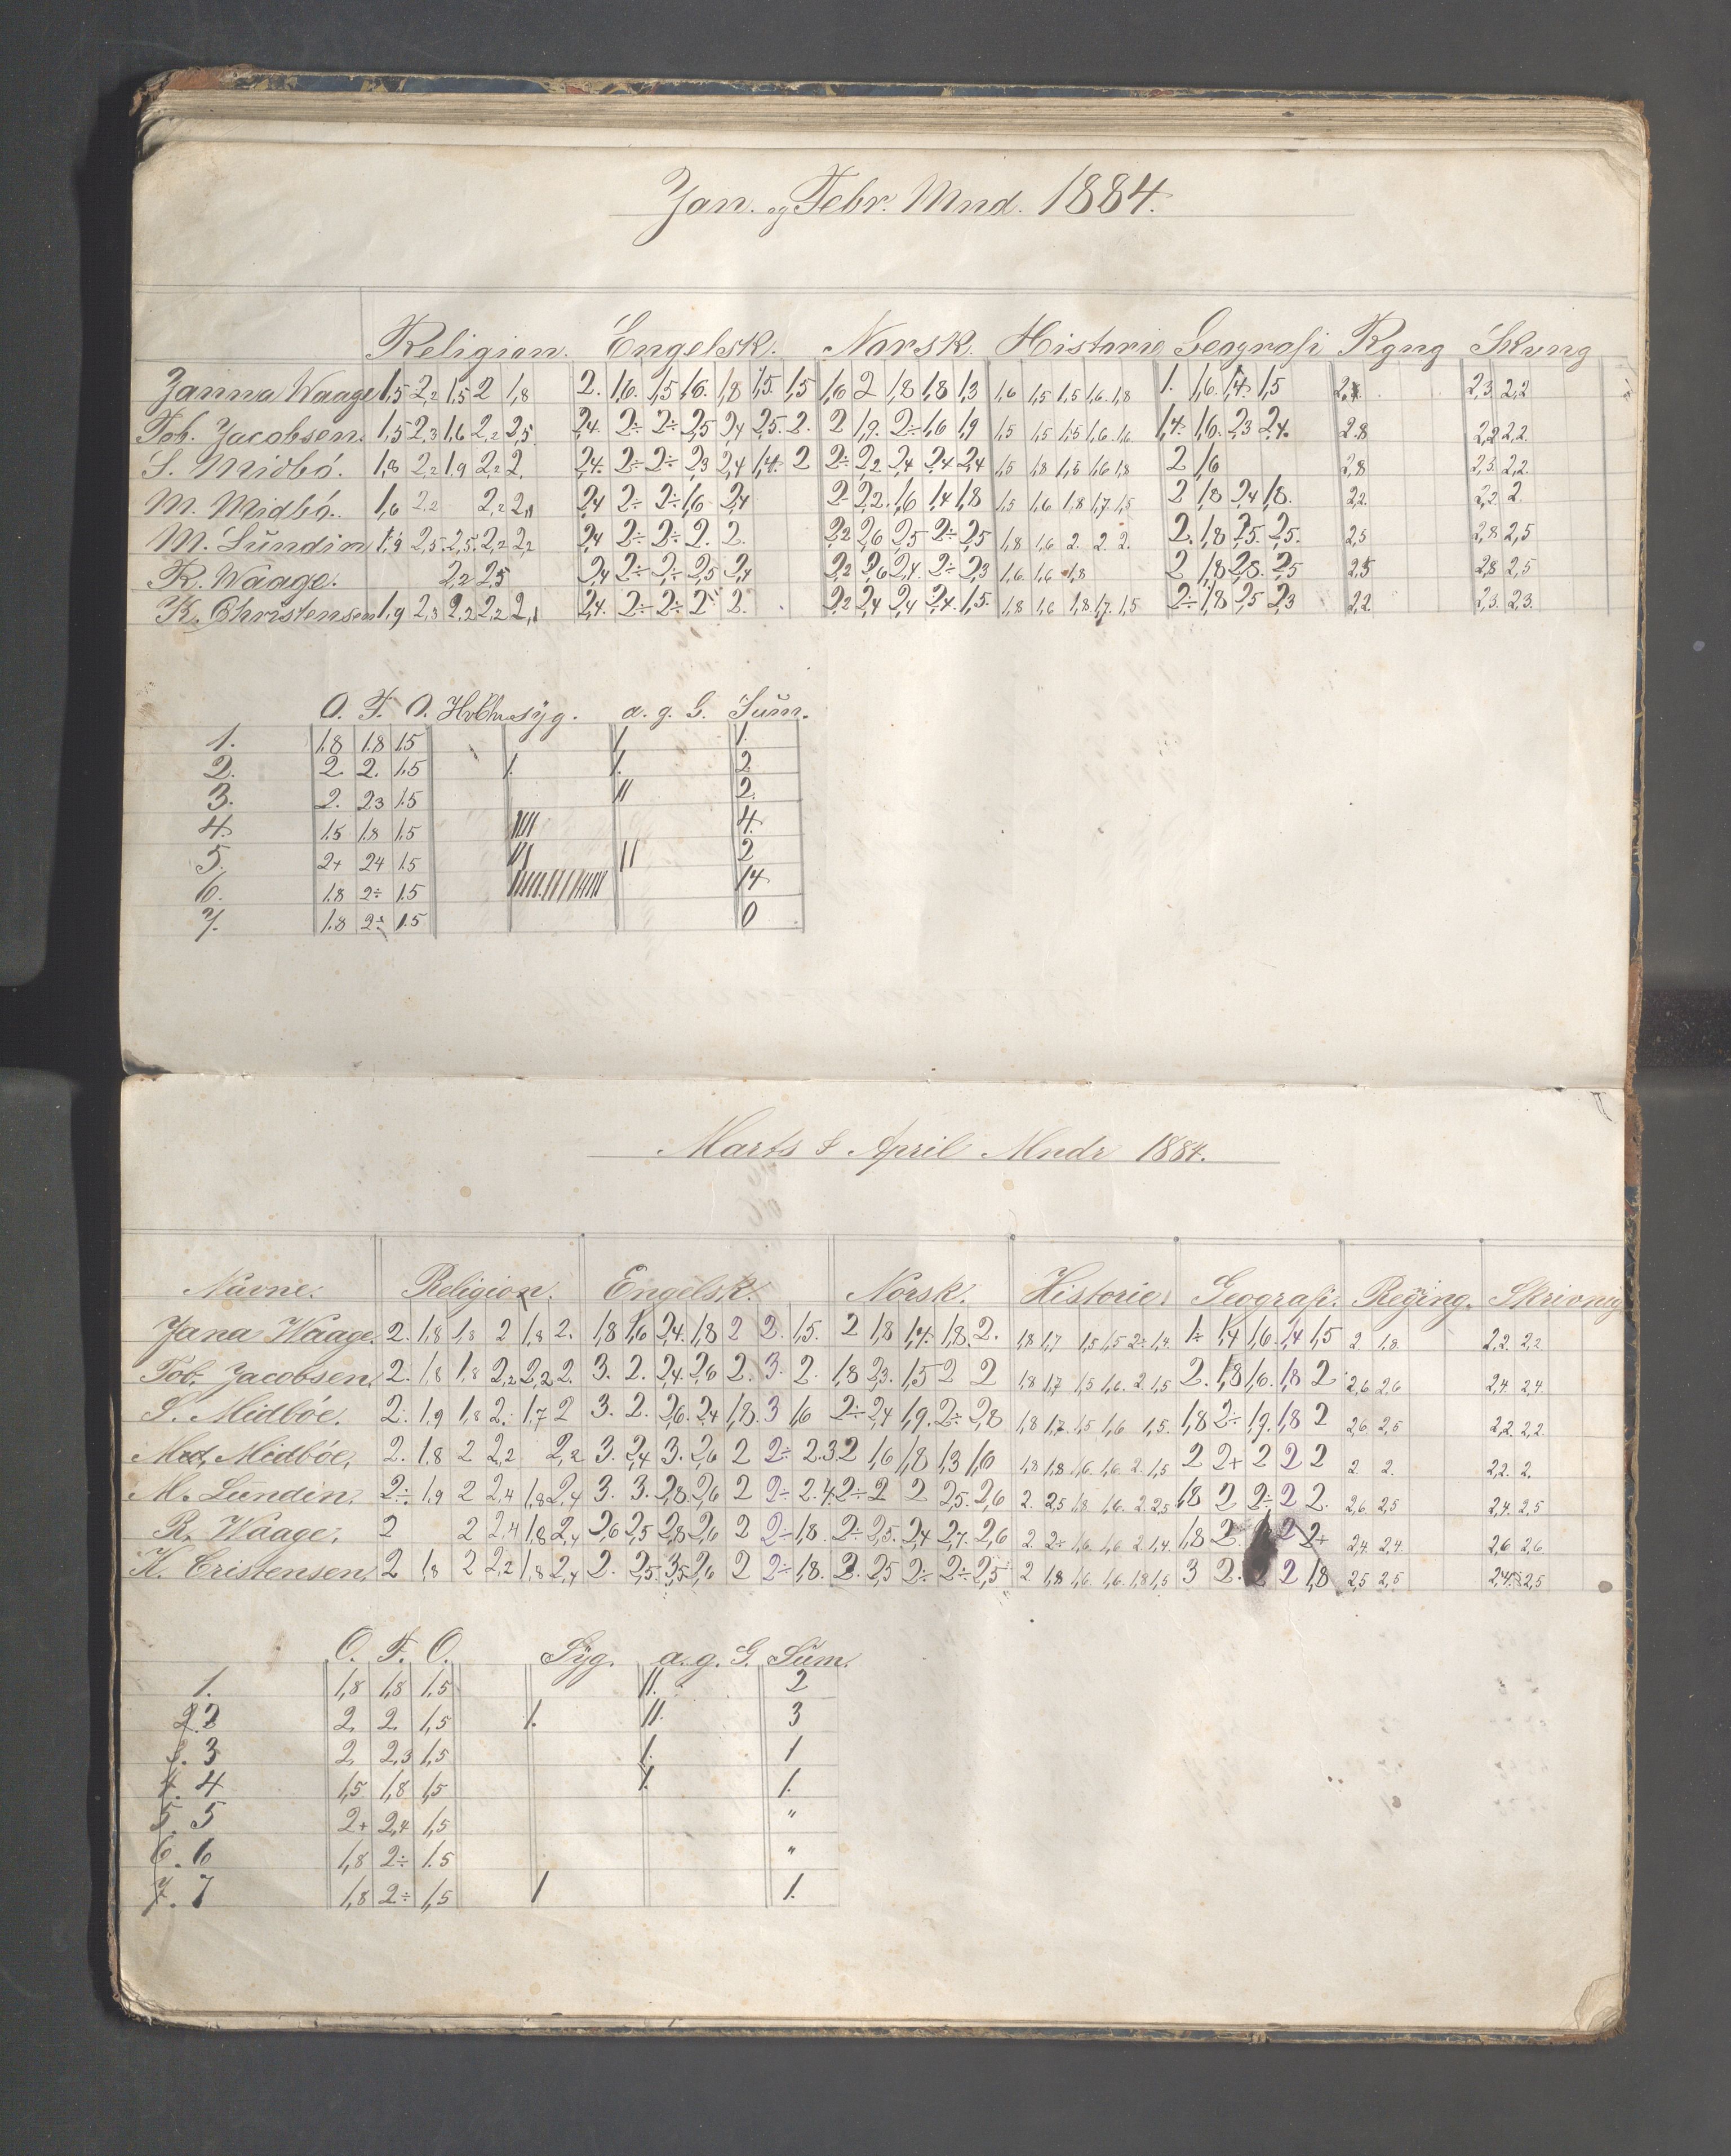 Jan. og Febr. Mnd. 1884.
Religion. Engelsk. Norsk. Historie Geografi Rgng Skvng
Janna Waage 1,5 2,2 1,5 2 1,8 2. 1,6. 1,5 1,6. 1,8 1,5. 1,5 1,6 2 1,8 1,8 1,3 1,6 1,5 1,5 1,6 1,8 1. 1,6 1,4 1,5 2,3 2,2
Tob. Jacobsen. 1,5 2,3 1,6 2,2 2,5 2,4. 2÷ 2÷ 2,5 2,4 2,5. 2. 2 1,9. 2÷ 1,6 1,9 1,5 1,5 1,5 1,6 1,6 1,4. 1,6. 2,3 2,4. 2.8 2,2 2,2.
S. Midbö. 1,8 2,2 1,9 2,2 2. 2,4. 2÷ 2÷ 2,3 2,4 1,4. 2 2÷ 2,2 2,4 2,4 2,4 1,5 1,8 1,5 1,6 1,8 2 1,6 2,8 2,3. 2,2.
M. Midbö. 1,6 2,2 2,2 2,1 2,4 2÷ 2÷ 1,6 2,4 2 2,2. 1,6 1,4 1,8 1,5 1,6 1,8 1,7. 1,5 2 1,8 2,4 1,8. 2,2. 2,2 2.
M. Lundin 1,9 2,5. 2,5. 2,2 2,2 2,4 2÷ 2÷ 2. 2. 2,2 2,6 2,5 2÷ 2,5 1,8 1,6 2. 2. 2. 2. 1,8 2,5. 2,5. 2,5 2,8 2,5
R. Waage. 2,2 2,5 2,4 2÷ 2÷ 2,5 2,4 2,2 2,6 2,4. 2÷ 2,3 1,6. 1,6 1,8 2 1,8 2,8. 2,5 2,5 2,8 2,5
K. Christensen 1,9 2,3 2,2 2,2 2,1 2,4. 2÷ 2÷ 2 2. 2,2 2,4 2,4 2,4. 1,5. 1,8 1,6 1,8 1,7. 1,5 2÷ 1,8 2,5 2,3 2,2 2,3. 2,3.
O. F. O. syg. a. g. G. Sum.
1. 1.8 1.8 1.5 1. 1.
2. 2. 2. 1.5 1. 1. 2
3. 2. 2.3 1.5 11 2.
4. 1.5 1.8 1.5 1111 4.
5. 2+ 2,4 1.5 11 2
6. 1.8 2÷ 1.5 14
7. 1.8 2÷ 1.5 0
Marts & April Mndr 1884.
Navne. Religion. Engelsk. Norsk. Historie. Geografi. Regjng. Skrivnig
Jana Waage. 2. 1,8 1,8 2 1,8 2. 1,8 1,6 2,4. 1,8 2 2. 1,5. 2 1,8 1,4. 1,8. 2. 1,8 1,7 1,5 1,5 2÷ 1,4. 1÷ 1,4 1,6. 1,4 1,5 2. 1,8. 2,2. 2,2.
Tob. Jacobsen. 2. 1,8 1,8 2,2 2,2 2. 3. 2. 2,4. 2,6 2. 3. 2. 1,8 2,3. 1,5 2 2 1,8 1,7 1,5 1,6. 2 1,5 2. 1,8 1,6. 1,8 2 2,6 2,6 2,4. 2,4.
S. Midböe. 2. 1,9 1,8 2. 1,7 2 3. 2. 2,6. 2,4 1,8. 3 1,6 2÷ 2,4 1,9. 2÷ 2,8 1,8 1,7. 1,5 1,6 1,5. 1,8 2÷ 1,9. 1,8 2 2,6 2,5 2,2. 2,2.
Midböe, 2. 1.8 2 2,2 2,2 3. 2,4 3. 2,6 2 2÷ 2.3. 2 1,6 1,8 1,3 1,6 1,8 1,8. 1,6. 1,6. 2. 1,5 2 2+ 2 2 2 2 2. 2,2. 2.
M. Lundin. 2÷ 1,9 2 2,4 1,8 2,4 3. 3. 2,8. 2,6 2 2÷ 2.4. 2÷ 2 2 2,5. 2,6 2. 2,5 1,8 1,6. 2. 2,5 1,8 2 2÷ 2 2. 2,6 2,5 2,4. 2,5
R. Waage. 2 2 2,4 1,8 2,4 2,6 2,5 2,8 2,6 2 2÷ 1,8. 2÷ 2,5. 2,4 2,7. 2,6 2. 2÷ 1,6 1,6 2 1,4. 1,8 2. 2 2+ 2,4. 2,4. 2,6 2,6
K. Cristensen. 2 1,8 2 2,2 1,8 2,4 2. 2,5. 3,5 2,6 2 2÷ 1,8. 2. 2,5 2÷ 2÷ 2,5 2. 1,8 1,6. 1,6. 1,8 1,5 3 2. 2 2 1,8 2,5 2,5 2,4. 2,5
O. F. O. Syg. a. g. G. Sum.
1. 1,8 1,8 1.5 11. 2
2. 2 2. 2. 1,5 1. 11. 3
3 2. 2,3 1,5 1. 1
4. 4 1,5 1,8 1,5 1. 1.
5. 5 2+ 2,4 1,5 "
6. 6 1,8 2÷ 1.5 "
7. 7 1,8 2÷ 1,5 1 1.